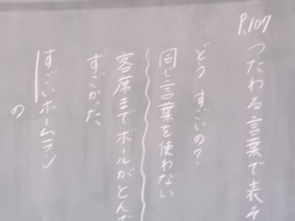 P.107
つたわる言葉で表そ
どう すごいの?
同じ言葉を使わない
客席までボールがとんだ
すごかった
すごいホームラン
の